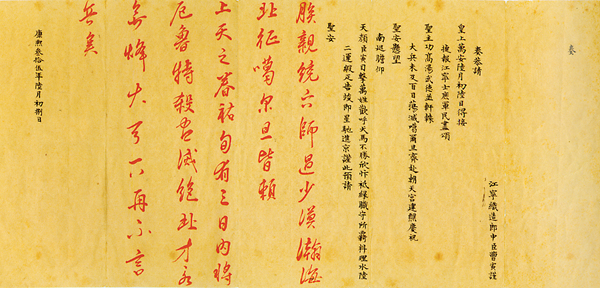 奏
江寧織造郎中臣曹寅謹
奏恭請
皇上萬安陸月初陸日得接
捷報江寧士庶軍民盡頌
聖主功高湯武德並軒轅
大兵未及百日蕩滅噶爾旦齊赴朝天宮建醮慶祝
聖安懸望
南巡瞻仰
天顏臣寅目擊萬姓歡呼犬馬不勝欣忭祗緣職守所羈料理水陸
二運緞疋告竣即星馳進京謹此預請
聖安
朕親統六師過沙漠瀚海
北征噶尔旦皆賴
上天之眷祐旬有三日內將
厄魯特殺盡滅絕北方永
無烽火天下再不言
兵矣
康熙叁拾伍年陸月初捌日